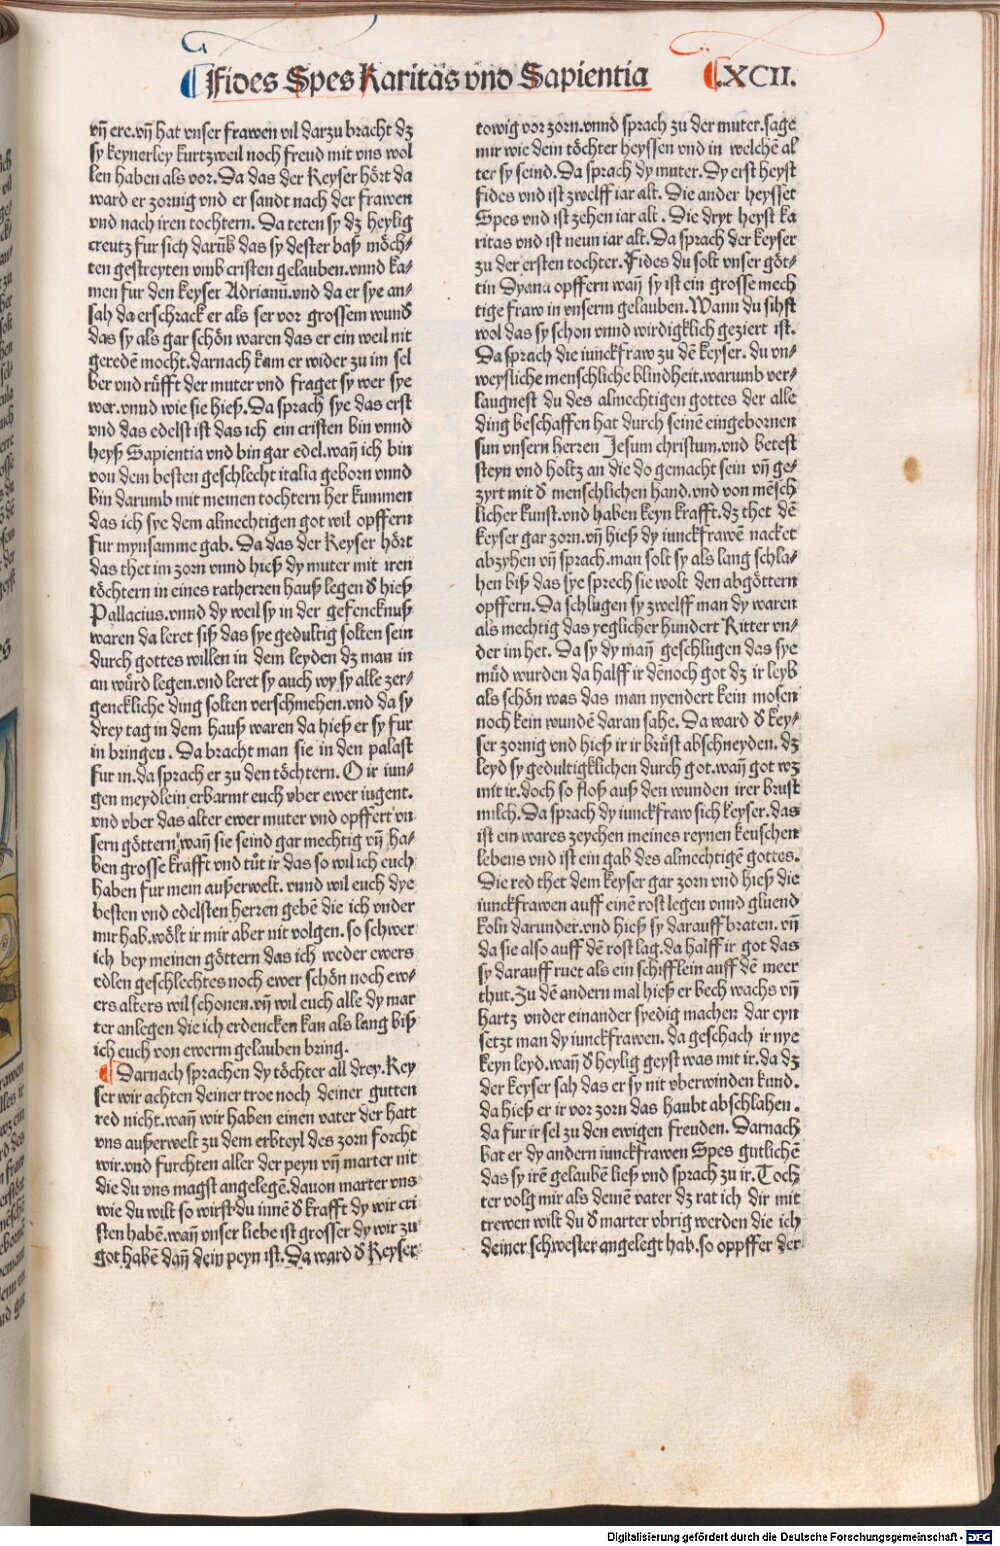 Fides Spes Karitas vnd Sapientia .XCII.
vn̄ ere.vn̄ hat vnser frawen vil darzu bracht dz
sy keynerley kurtzweil noch freud mit vns wol
len haben als vor. Da das der Keyser hört da
ward er zornig vnd er sandt nach der frawen
vnd nach iren tochtern. Da teten sy dz heylig
creutz fur sich darūb das sy dester baß möch⸗
ten gestreyten vmb cristen gelauben.vnnd ka⸗
men fur den keyser Adrianū.vnd da er sye an⸗
sah da erschrack er als ser vor grossem wund̄
das sy als gar schön waren das er ein weil nit
geredē mocht.darnach kam er wider zu im sel
ber vnd rüfft der muter vnd fraget sy wer sye
wer.vnnd wie sie hieß. Da sprach sye das erst
vnd das edelst ist das ich ein cristen bin vnnd
heyß Sapientia vnd bin gar edel.wañ ich bin
von dem besten geschlecht italia geborn vnnd
bin darumb mit meinen tochtern her kummen
das ich sye dem almechtigen got wil opffern
fur mynsamme gab. Da das der Keyser hört
das thet im zorn vnnd hieß dy muter mit iren
töchtern in eines ratherren hauß legen d̄ hieß
Pallacius.vnnd dy weil sy in der gefencknuß
waren da leret siß das sye gedultig solten sein
durch gottes willen in dem leyden dz man in
an würd legen.vnd leret sy auch wy sy alle zer⸗
genckliche ding solten verschmehen.vnd da sy
drey tag in dem hauß waren da hieß er sy fur
in bringen. Da bracht man sie in den palast
fur in.da sprach er zu den töchtern. O ir iun⸗
gen meydlein erbarmt euch vber ewer iugent.
vnd vber das alter ewer muter vnd opffert vn
sern göttern.wañ sie seind gar mechtig vn̄ ha⸗
ben grosse krafft vnd tüt ir das so wil ich euch
haben fur mein außerwelt.vnnd wil euch dye
besten vnd edelsten herren gebē die ich vnder
mir hab.wölt ir mir aber nit volgen.so schwer
ich bey meinen göttern das ich weder ewers
edlen geschlechtes noch ewer schön noch ew⸗
ers alters wil schonen.vn̄ wil euch alle dy mar
ter anlegen die ich erdencken kan als lang biß
ich euch von ewerm gelauben bring.
Darnach sprachen dy töchter all drey. Key
ser wir achten deiner troe noch deiner gutten
red nicht.wañ wir haben einen vater der hatt
vns außerwelt zu dem erbteyl des zorn forcht
wir.vnd furchten aller der peyn vn̄ marter nit
die du vns magst angelegē.dauon marter vns
wie du wilt so wirst du innē d̄ krafft dy wir cri
sten habē.wañ vnser liebe ist grosser dy wir zu
got habē dañ dein peyn ist. Da ward d̄ Keyser
towig vor zorn.vnnd sprach zu der muter.sage
mir wie dein töchter heyssen vnd in welchē al
ter sy seind. Da sprach dy muter. Dy erst heyst
Fides vnd ist zwelff iar alt. Die ander heysset
Spes vnd ist zehen iar alt. Die dryt heyst ka
ritas vnd ist neun iar alt. Da sprach der keyser
zu der ersten tochter. Fides du solt vnser göt⸗
tin Dyana opffern wañ sy ist ein grosse mech
tige fraw in vnserm gelauben. Wann du sihst
wol das sy schon vnnd wirdigklich geziert ist.
Da sprach die iunckfraw zu dē keyser. du vn⸗
weysliche menschliche blindheit.warumb ver⸗
laugnest du des almechtigen gottes der alle
ding beschaffen hat durch seinē eingebornen
sun vnsern herren Jesum christum.vnd betest
steyn vnd holtz an die do gemacht sein vn̄ ge⸗
zyrt mit d̄ menschlichen hand.vnd von mēsch
licher kunst.vnd haben keyn krafft.dz thet dē
keyser gar zorn.vn̄ hieß dy iunckfrawē nacket
abzyhen vn̄ sprach.man solt sy als lang schla⸗
hen biß das sye sprech sie wolt den abgöttern
opffern. Da schlugen sy zwelff man dy waren
als mechtig das yeglicher hundert Ritter vn⸗
der im het. Da sy dy mañ geschlugen das sye
müd wurden da halff ir dēnoch got dz ir leyb
als schön was das man nyendert kein mosen
noch kein wundē daran sahe. Da ward d̄ key⸗
ser zornig vnd hieß ir ir brüst abschneyden. dz
leyd sy gedultigklichen durch got.wañ got wz
mit ir.doch so floß auß den wunden irer brust
milch. Da sprach dy iunckfraw sich keyser.das
ist ein wares zeychen meines reynen keuschen
lebens vnd ist ein gab des almechtigē gottes.
Die red thet dem keyser gar zorn vnd hieß die
iunckfrawen auff einē rost legen vnnd gluend
koln darunder.vnd hieß sy darauff braten. vn̄
da sie also auff dē rost lag.da halff ir got das
sy darauff ruet als ein schifflein auff dē meer
thut. Zu dē andern mal hieß er bech wachs vn̄
hartz vnder einander syedig machen dar eyn
setzt man dy iunckfrawen. da geschach ir nye
keyn leyd.wañ d̄ heylig geyst was mit ir.da dz
der keyser sah das er sy nit vberwinden kund.
da hieß er ir vor zorn das haubt abschlahen.
da fur ir sel zu den ewigen freuden. Darnach
bat er dy andern iunckfrawen Spes gutlichē
das sy irē gelaubē ließ vnd sprach zu ir. Toch
ter volg mir als deinē vater dz rat ich dir mit
trewen wilt du d̄ marter vbrig werden die ich
deiner schwester angelegt hab.so oppffer der
Digitalisierung gefördert durch die Deutsche Forschungsgemeinschaft - DFG